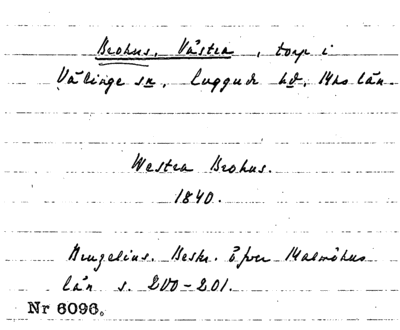 Brohus, Västra, torp i
Välinge sn, Luggude hd, Mhs län.
Westra Brohus.
1840.
Bengelius. Beskr. öfver Malmöhus
län s. 200-201.
Nr 6096.